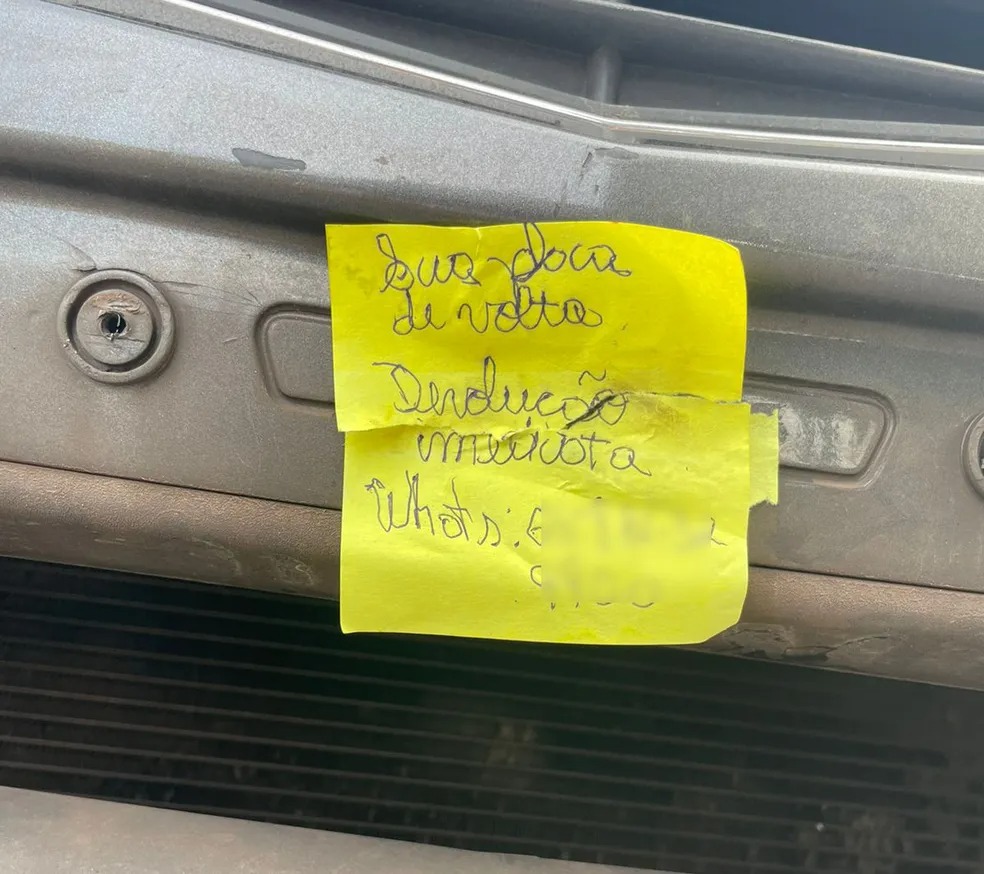 Sua placa
de volta
Devolução
imediata
Whats: